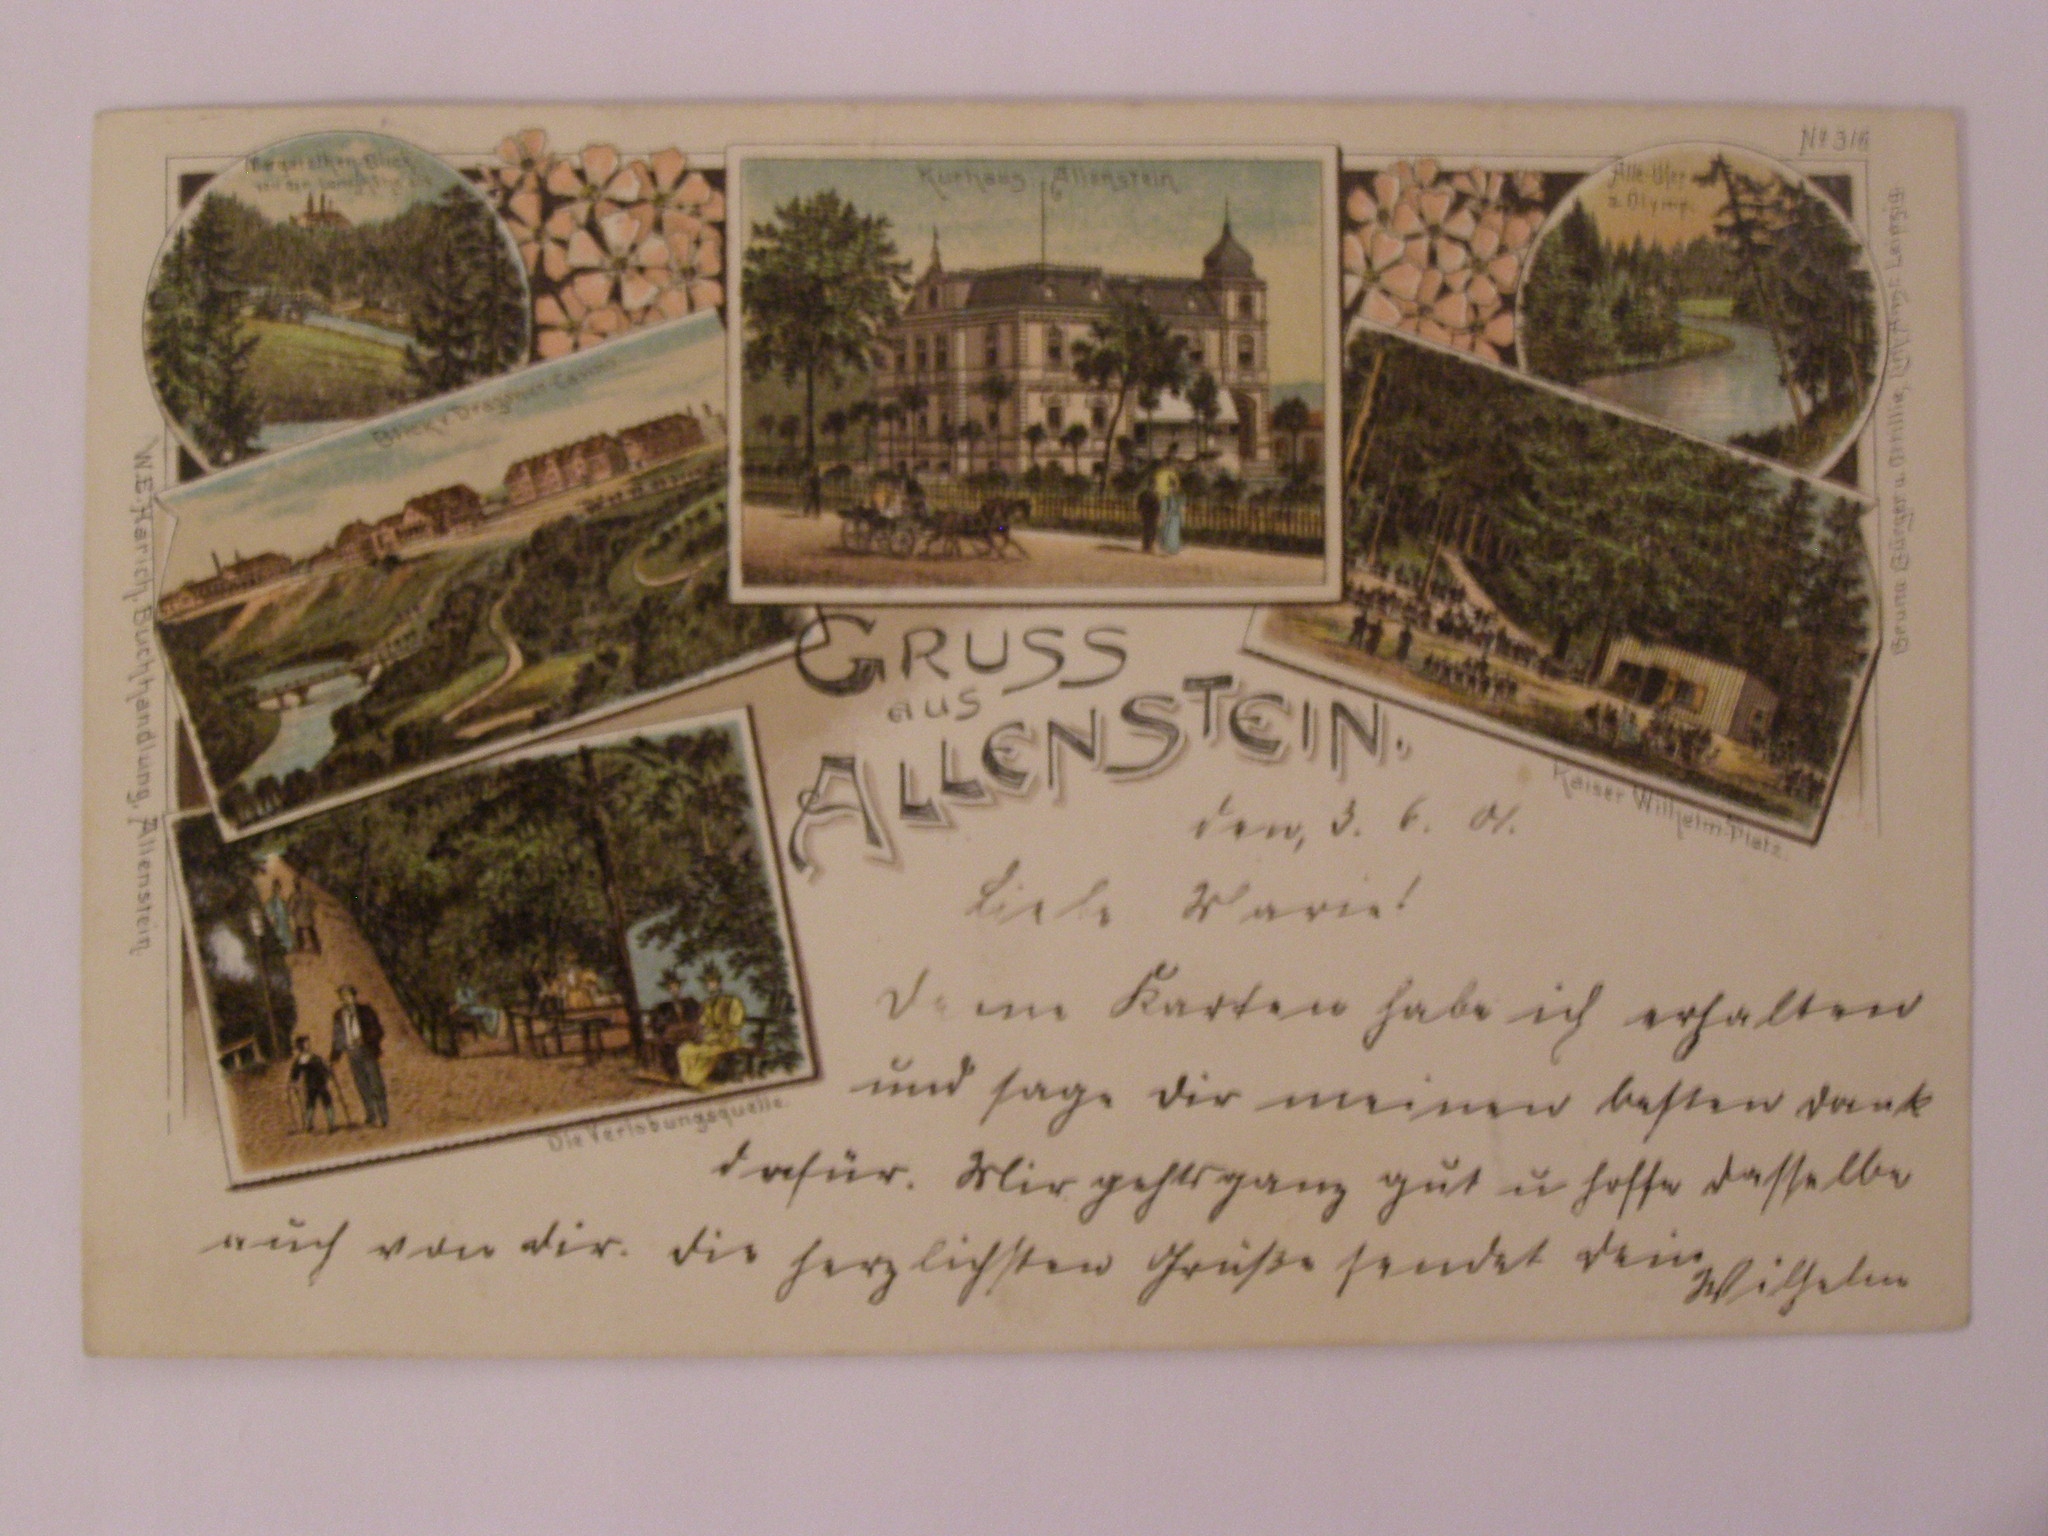 Nº 316
Kurhaus Allenstein
Alle-Ufer
a. Olymp.
Blick v. Dragoner-Casino
Kaiser Wilhelm-Platz.
Die Verlobungsquelle.
W.E. Harich, Buchhandlung, Allenstein
Bruno Bürger u. Ottillie, Lith. Anst. Leipzig
GRUSS
aus
ALLENSTEIN.
den, 3. 6. 01.
Liebe Marie!
Deine Karten habe ich erhalten
und sage dir meinen besten dank
dafür. Mir gehts ganz gut u hoffe dasselbe
auch von dir. die herzlichsten Grüße sendet dein
Wilhelm